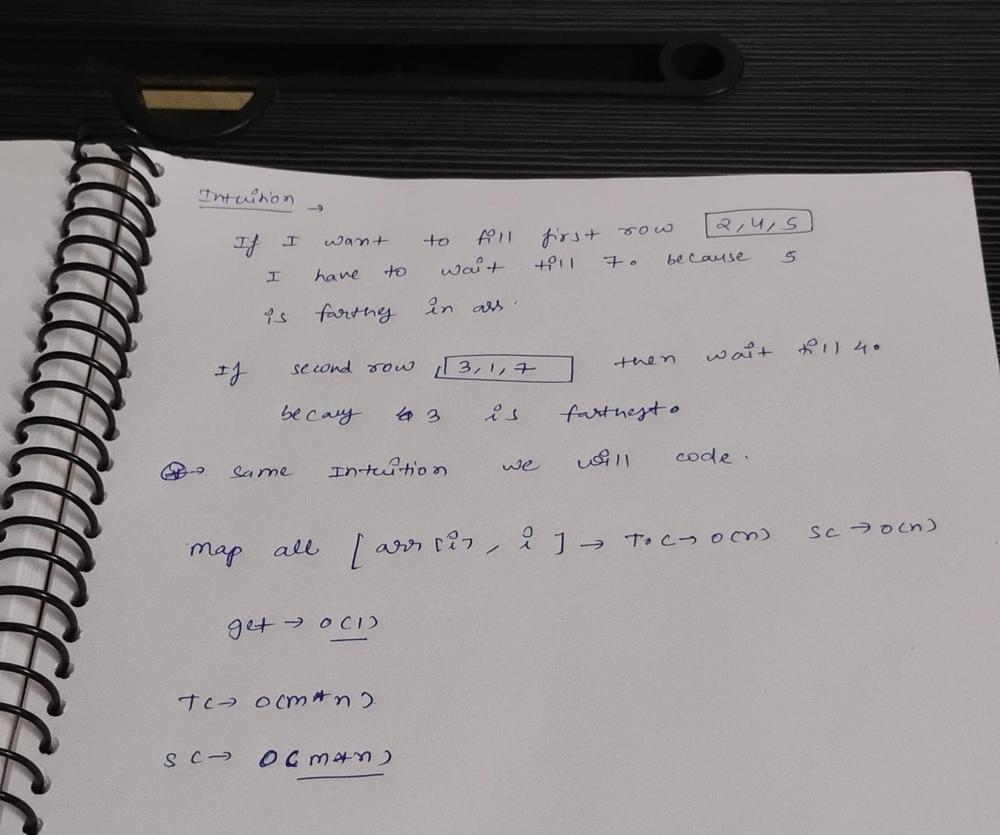 Intuition →
If I want to fill first row 2,4,5
I have to wait till 7. because 5
is farthey in arr.
If second row 3,1,7 then wait till 4.
becauy 3 is farthest.
→ same Intuition we will code.
Map all [arr[i], i] → T.C → O(n) SC → O(n)
get → O(1)
TC → O(m*n)
SC → O(m*n)